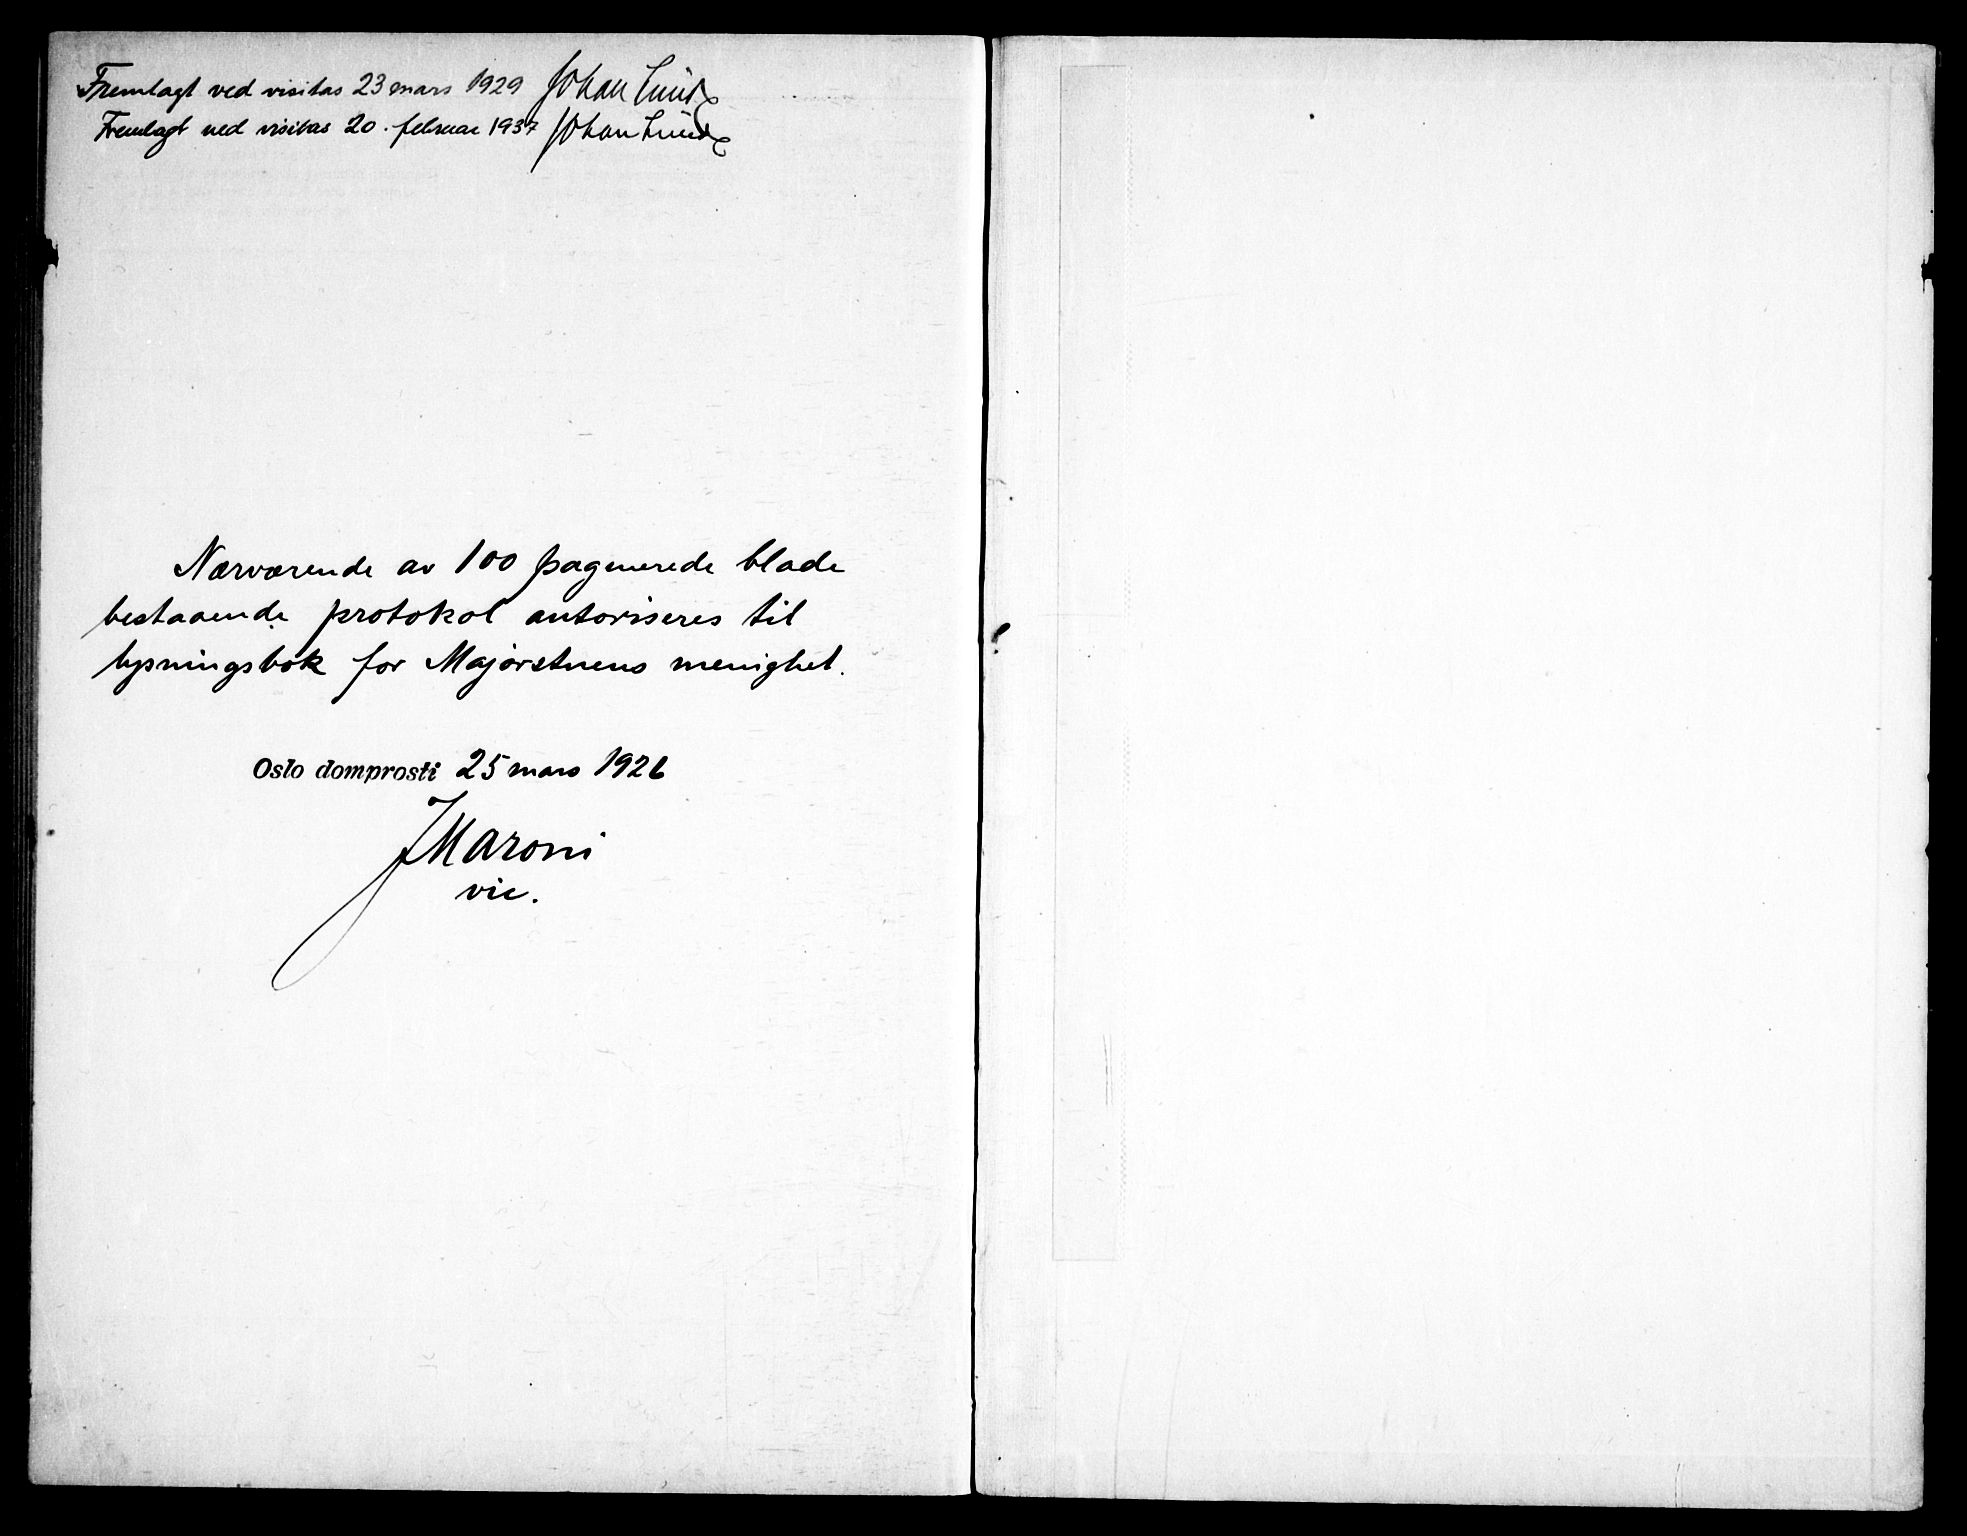 Fremlagt ved visitas 23 mars 1929 Johan Lunde
Fremlagt ved visitas 20. februar 1937 Johan Lunde
Nærværende av 100 paginerede blade
bestaaende protokol autoriseres til
lysningsbok for Majorstuens menighet.
Oslo domprosti 25 mars 1926
J Maroni
vic.